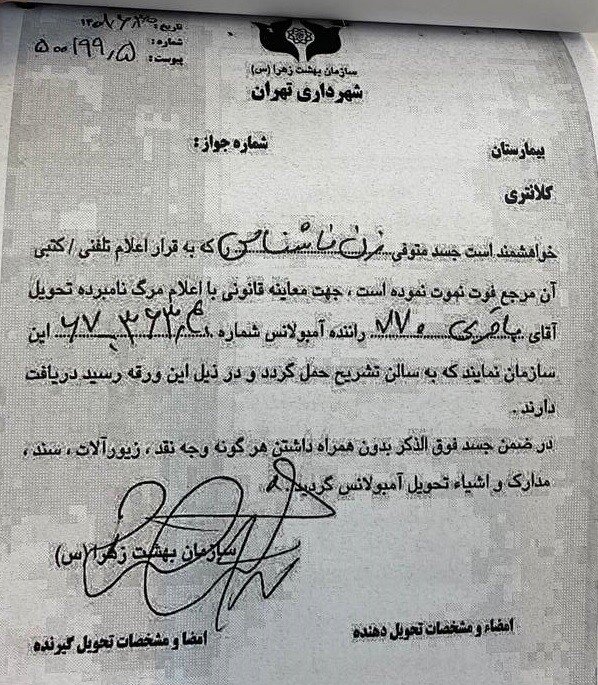 تاریخ:
شماره:
پیوست: ۵۰۰۱۹۹٫۵
سازمان بهشت زهرا (س)
شهرداری تهران
بیمارستان شماره جواز :
کلانتری
خواهشمند است جسد متوفی زن ناشناس را که به قرار اعلام تلفنی / کتبی
آن مرجع فوت نموت نموده است ، جهت معاینه قانونی با اعلام مرگ نامبرده تحویل
آقای باقری ۸۷۰ راننده آمبولانس شماره این
سازمان نمایند که به سالن تشریح حمل گردد و در ذیل این ورقه رسید دریافت
دارند .
در ضمن جسد فوق الذکر بدون همراه داشتن هر گونه وجه نقد ، زیورآلات ، سند ،
مدارک و اشیاء تحویل آمبولانس گردید
سازمان بهشت زهرا (س)
امضاء و مشخصات تحویل دهنده امضا و مشخصات تحویل گیرنده